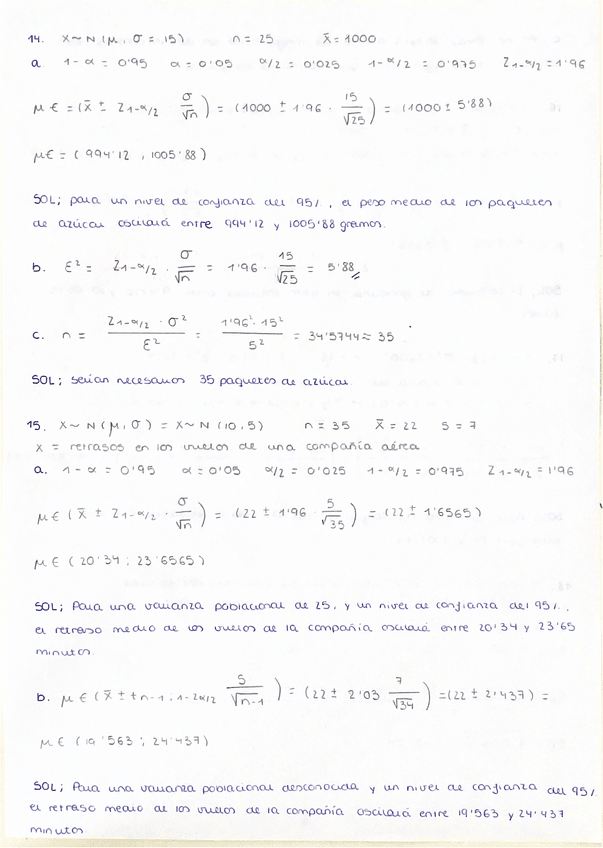 14. X ~ N (μ, σ = 15) n = 25 x̄ = 1000
a. 1 - α = 0'95 α = 0'05 α/2 = 0'025 1 - α/2 = 0'975 Z1-α/2 = 1'96
μ ∈ = (x̄ ± Z1-α/2 σ/√n) = (1000 ± 1'96 · 15/√25) = (1000 ± 5'88)
μ ∈ = (994'12 , 1005'88)
SOL; para un nivel de confianza del 95%, el peso medio de los paquetes
de azúcar oscilará entre 994'12 y 1005'88 gramos.
b. ε² = Z1-α/2 · σ/√n = 1'96 · 15/√25 = 5'88
c. n = Z1-α/2 · σ²/ε² = 1'96² · 15²/5² = 34'5744 ≈ 35
SOL; serian necesarios 35 paquetes de azúcar
15. X ~ N (μ, σ) = X ~ N (10, 5) n = 35 x̄ = 22 S = 7
X = retrasos en los vuelos de una compañía aérea
a. 1 - α = 0'95 α = 0'05 α/2 = 0'025 1 - α/2 = 0'975 Z1-α/2 = 1'96
μ ∈ (x̄ ± Z1-α/2 · σ/√n) = (22 ± 1'96 · 5/√35) = (22 ± 1'6565)
μ ∈ (20'34 ; 23'6565)
SOL; Para una varianza poblacional de 25, y un nivel de confianza del 95%,
el retraso medio de los vuelos de la compañía oscilará entre 20'34 y 23'65
minutos.
b. μ ∈ (x̄ ± tn-1 ; 1-2α/2 S/√n-1) = (22 ± 2'03 7/√34) = (22 ± 2'437) =
μ ∈ (19'563 ; 24'437)
SOL; Para una varianza poblacional desconocida y un nivel de confianza del 95%
el retraso medio de los vuelos de la compañía oscilará entre 19'563 y 24'437
minutos